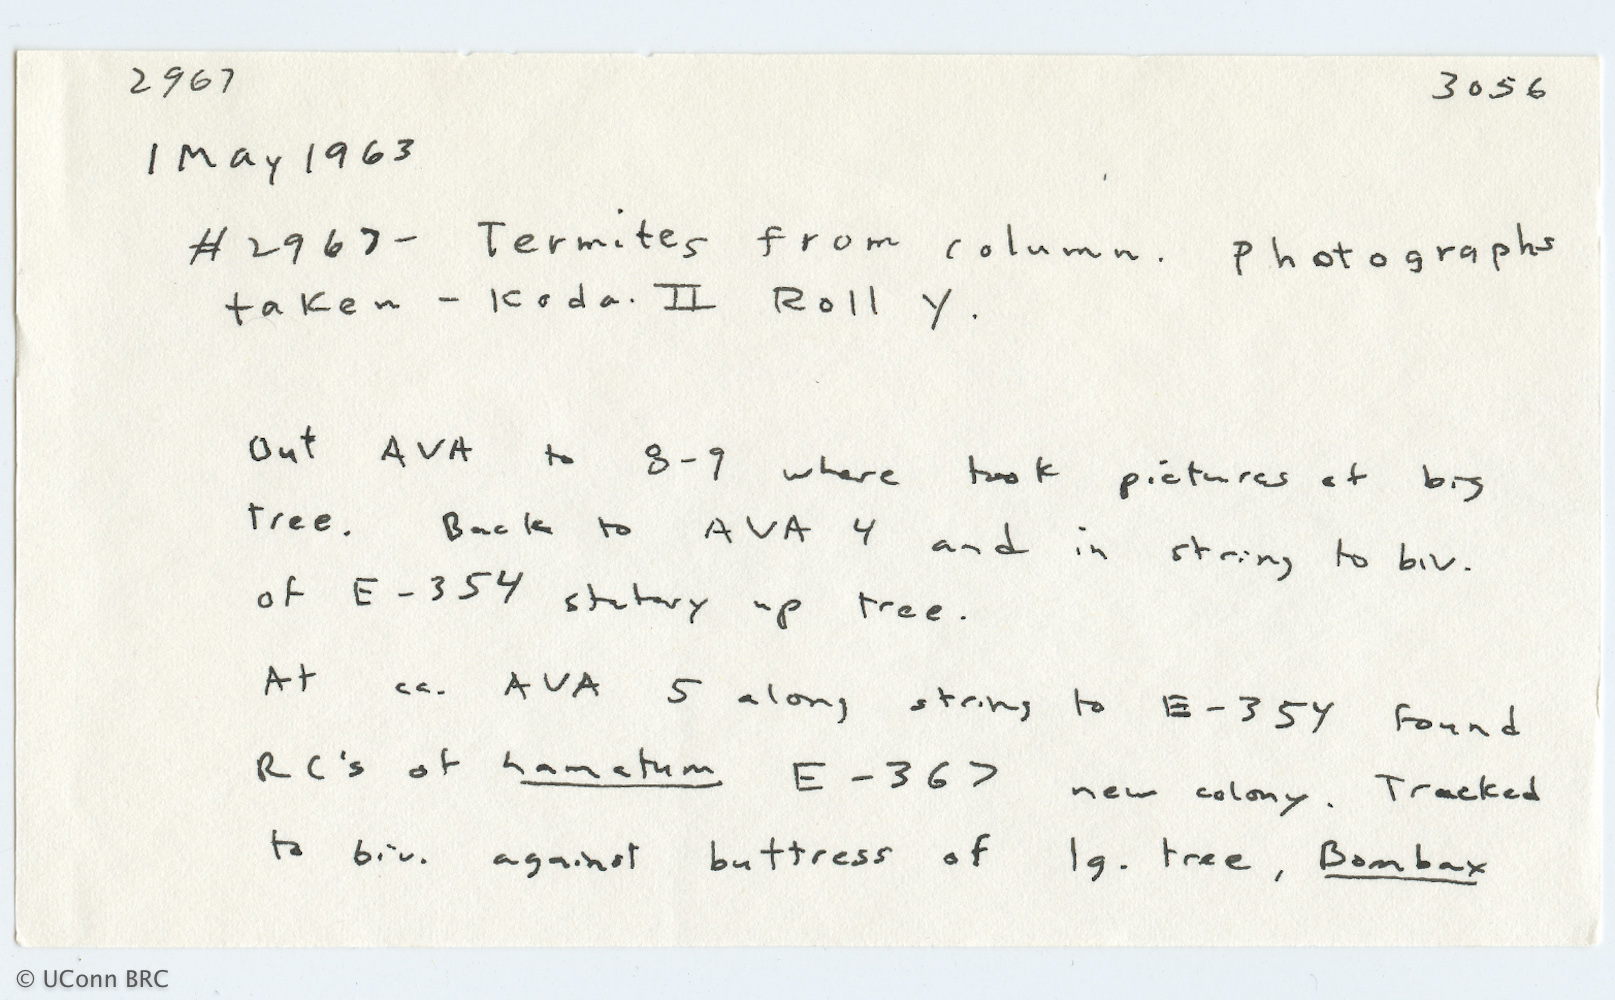 2967 3056
1 May 1963
#2967- Termites from column. Photographs
taken - Koda. II Roll Y.
Out AVA to 8-9 where took pictures at big
tree. Back to AVA 4 and in string to biv.
of E-354 statary up tree.
At ca. AVA 5 along string to E-354 found
RC's of hamatum E-367 new colony. Tracked
to biv. against buttress of lg. tree, Bombax
© UConn BRC